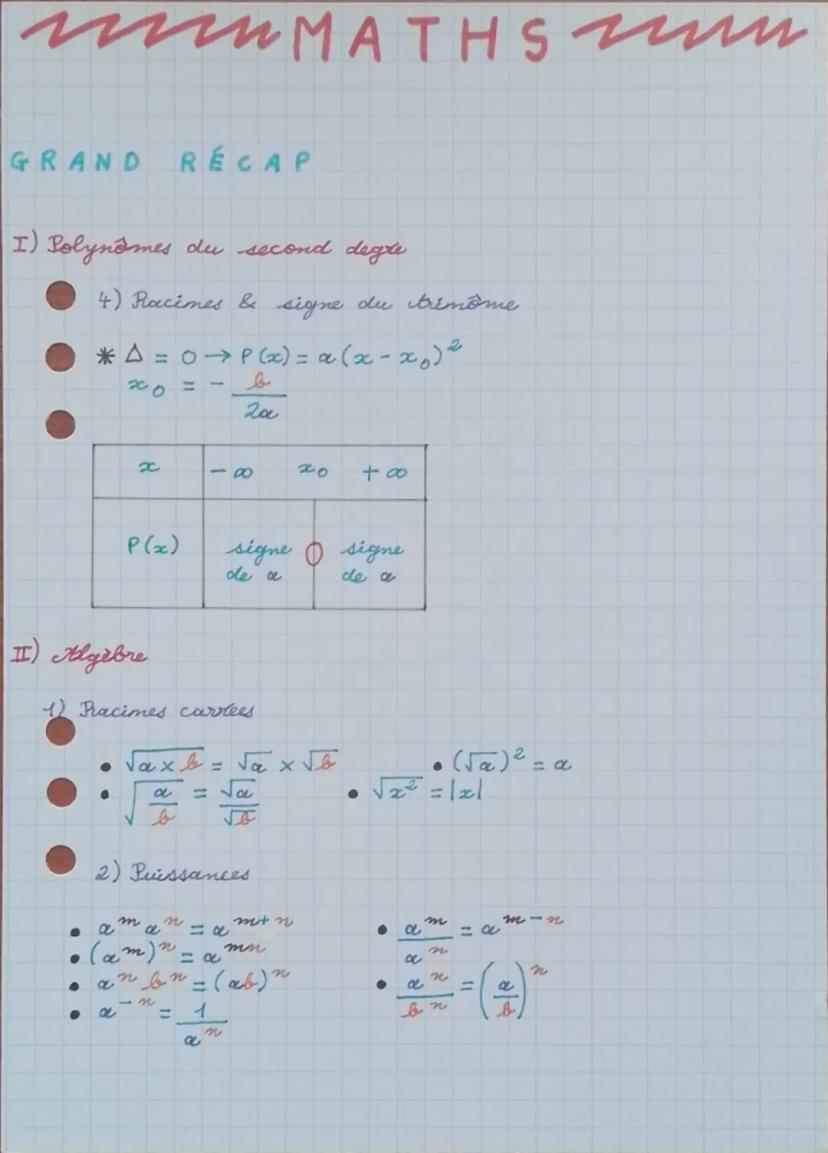 MATHS
GRAND RÉCAP
I) Polynômes du second degré
4) Racines & signe du trinôme
* Δ = 0 → P(x) = a(x - x₀)²
x₀ = - b/2a
x | -∞ x₀ +∞
P(x) | signe de a 0 signe de a
II) Algèbre
1) Racines carrées
• √(a × b) = √a × √b • (√a)² = a
• √(a/b) = √a/√b • √(x²) = |x|
2) Puissances
• aᵐ aⁿ = aᵐ⁺ⁿ • aᵐ/aⁿ = aᵐ⁻ⁿ
• (aᵐ)ⁿ = aᵐⁿ
• aⁿ bⁿ = (ab)ⁿ • aⁿ/bⁿ = (a/b)ⁿ
• a⁻ⁿ = 1/aⁿ